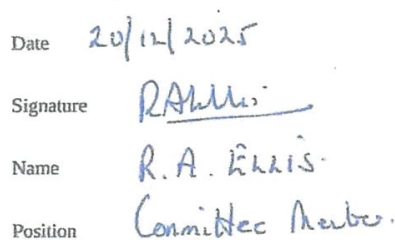 Date 20/12/2025
Signature RAEllis
Name R. A. ELLIS.
Position Committee Member.